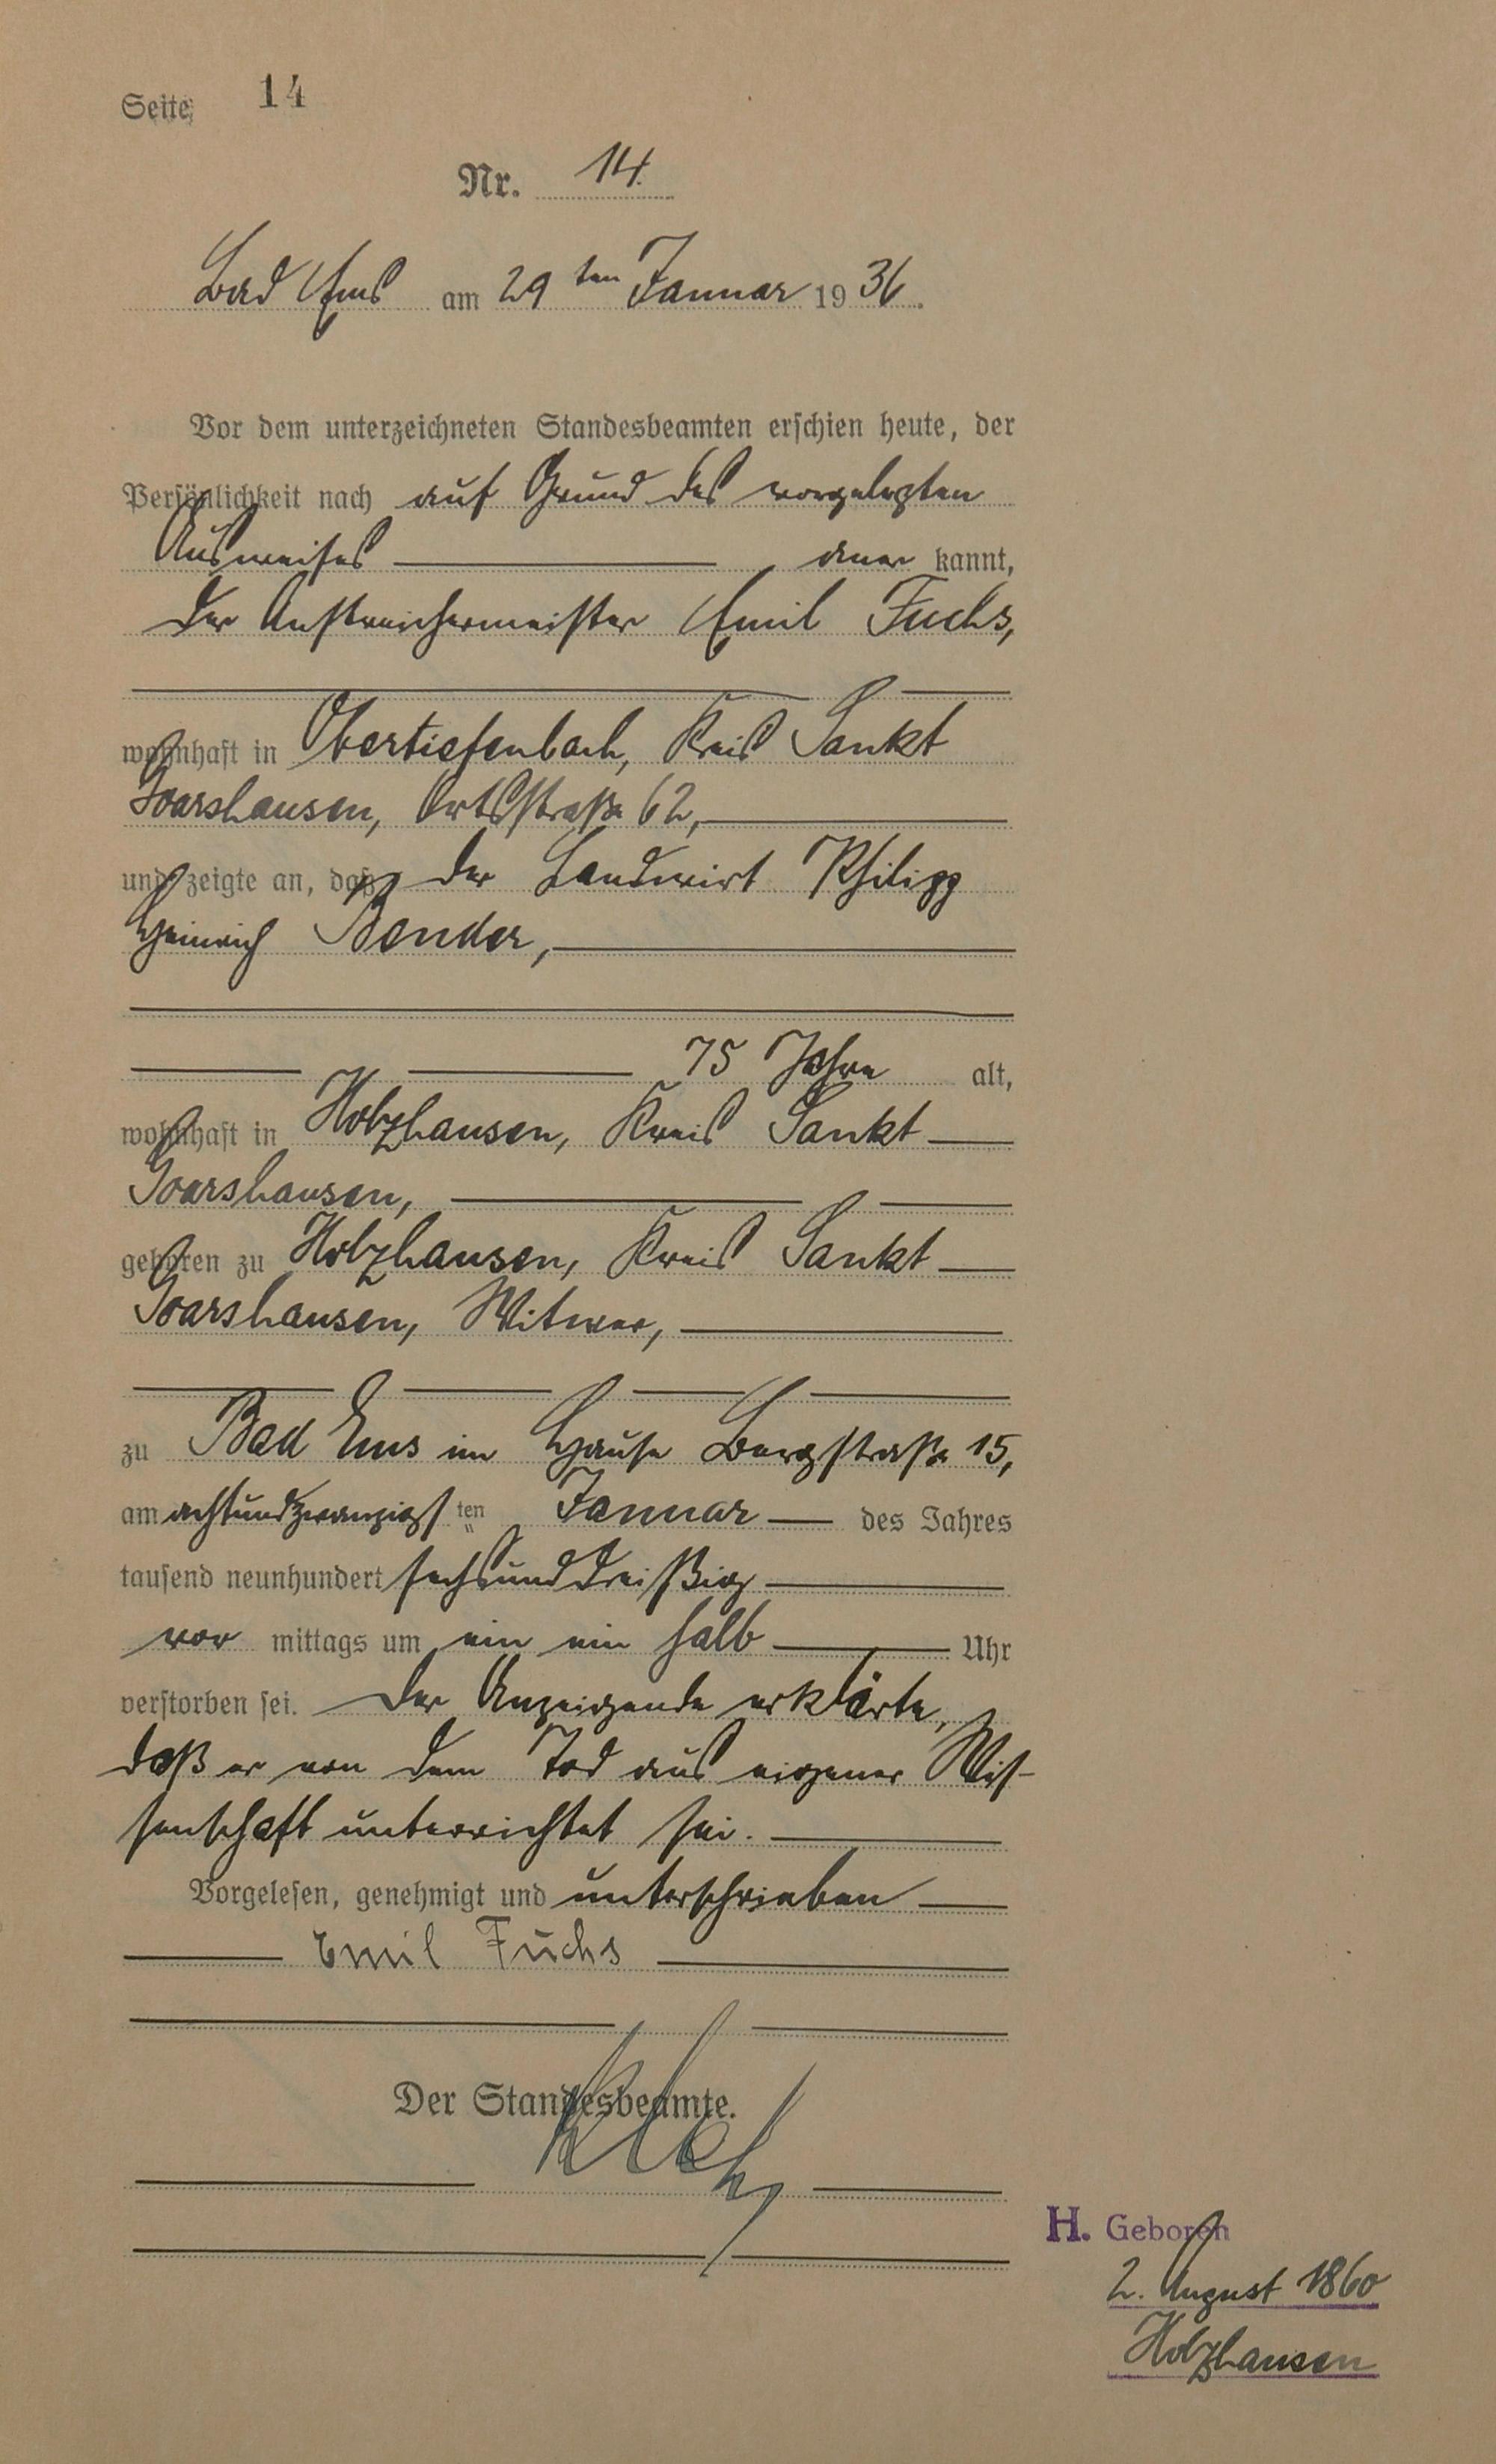 Seite 14
Nr. 14.
Bad Ems am 29 ten Januar 1936.
Vor dem unterzeichneten Standesbeamten erschien heute, der
Persönlichkeit nach auf Grund des vorgelegten
Ausweises aner kannt,
der Anstreichermeister Emil Fuchs,
wohnhaft in Obertiefenbach, Kreis Sankt
Goarshausen, Ortsstraße 62,
und zeigte an, daß der Landwirt Philipp
Heinrich Bender,
75 Jahre alt,
wohnhaft in Holzhausen, Kreis Sankt
Goarshausen,
geboren zu Holzhausen, Kreis Sankt
Goarshausen, Witwer,
zu Bad Ems im Hause Bergstraße 15,
am achtundzwanzigsten Januar des Jahres
tausend neunhundert sechsunddreißig
vor mittags um ein ein halb Uhr
verstorben sei. Der Anzeigende erklärte,
daß er von dem Tod aus eigener Wis-
senschaft unterrichtet sei.
Vorgelesen, genehmigt und unterschrieben
Emil Fuchs
Der Standesbeamte.
H. Geboren
2. August 1860
Holzhausen